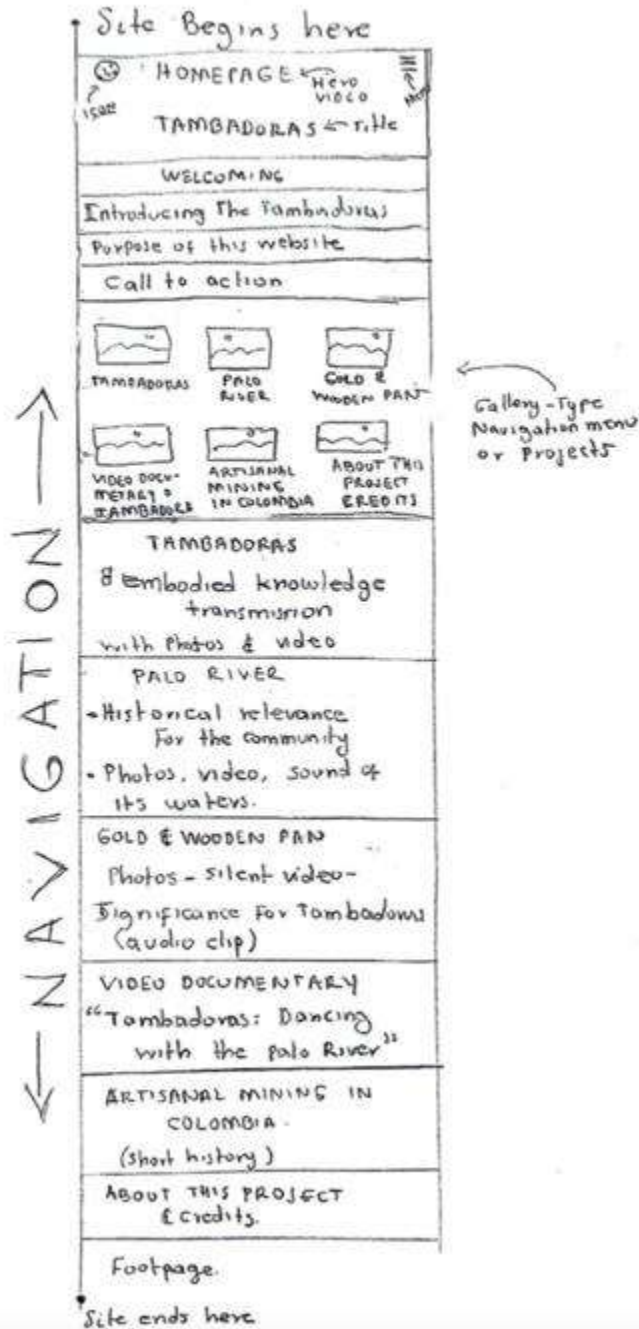 Site Begins here
HOMEPAGE
Hero
VIDEO
Menu
TAMBADORAS ← title
WELCOMING
Introducing The Tambadoras
Purpose of this website
Call to action
TAMBADORAS
PALO
RIVER
GOLD &
WOODEN PAN
VIDEO DOCU-
METARY
TAMBADORA
ARTISANAL
MINING
IN COLOMBIA
ABOUT THIS
PROJECT
CREDITS
Gallery-Type
Navigation menu
or Projects
NAVIGATION
TAMBADORAS
& embodied knowledge
transmission
with Photos & video
PALO RIVER
• Historical relevance
For the community
• Photos, video, sound of
its waters.
GOLD & WOODEN PAN
Photos – silent video –
Significance for Tambadoras
(audio clip)
VIDEO DOCUMENTARY
“Tambadoras: Dancing
with the palo River”
ARTISANAL MINING IN
COLOMBIA.
(short history)
ABOUT THIS PROJECT
& Credits.
Footpage.
Site ends here